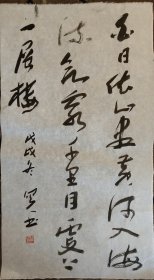 白日依山尽黄河入海
流欲穷千里目更上
一层楼
戊戌冬